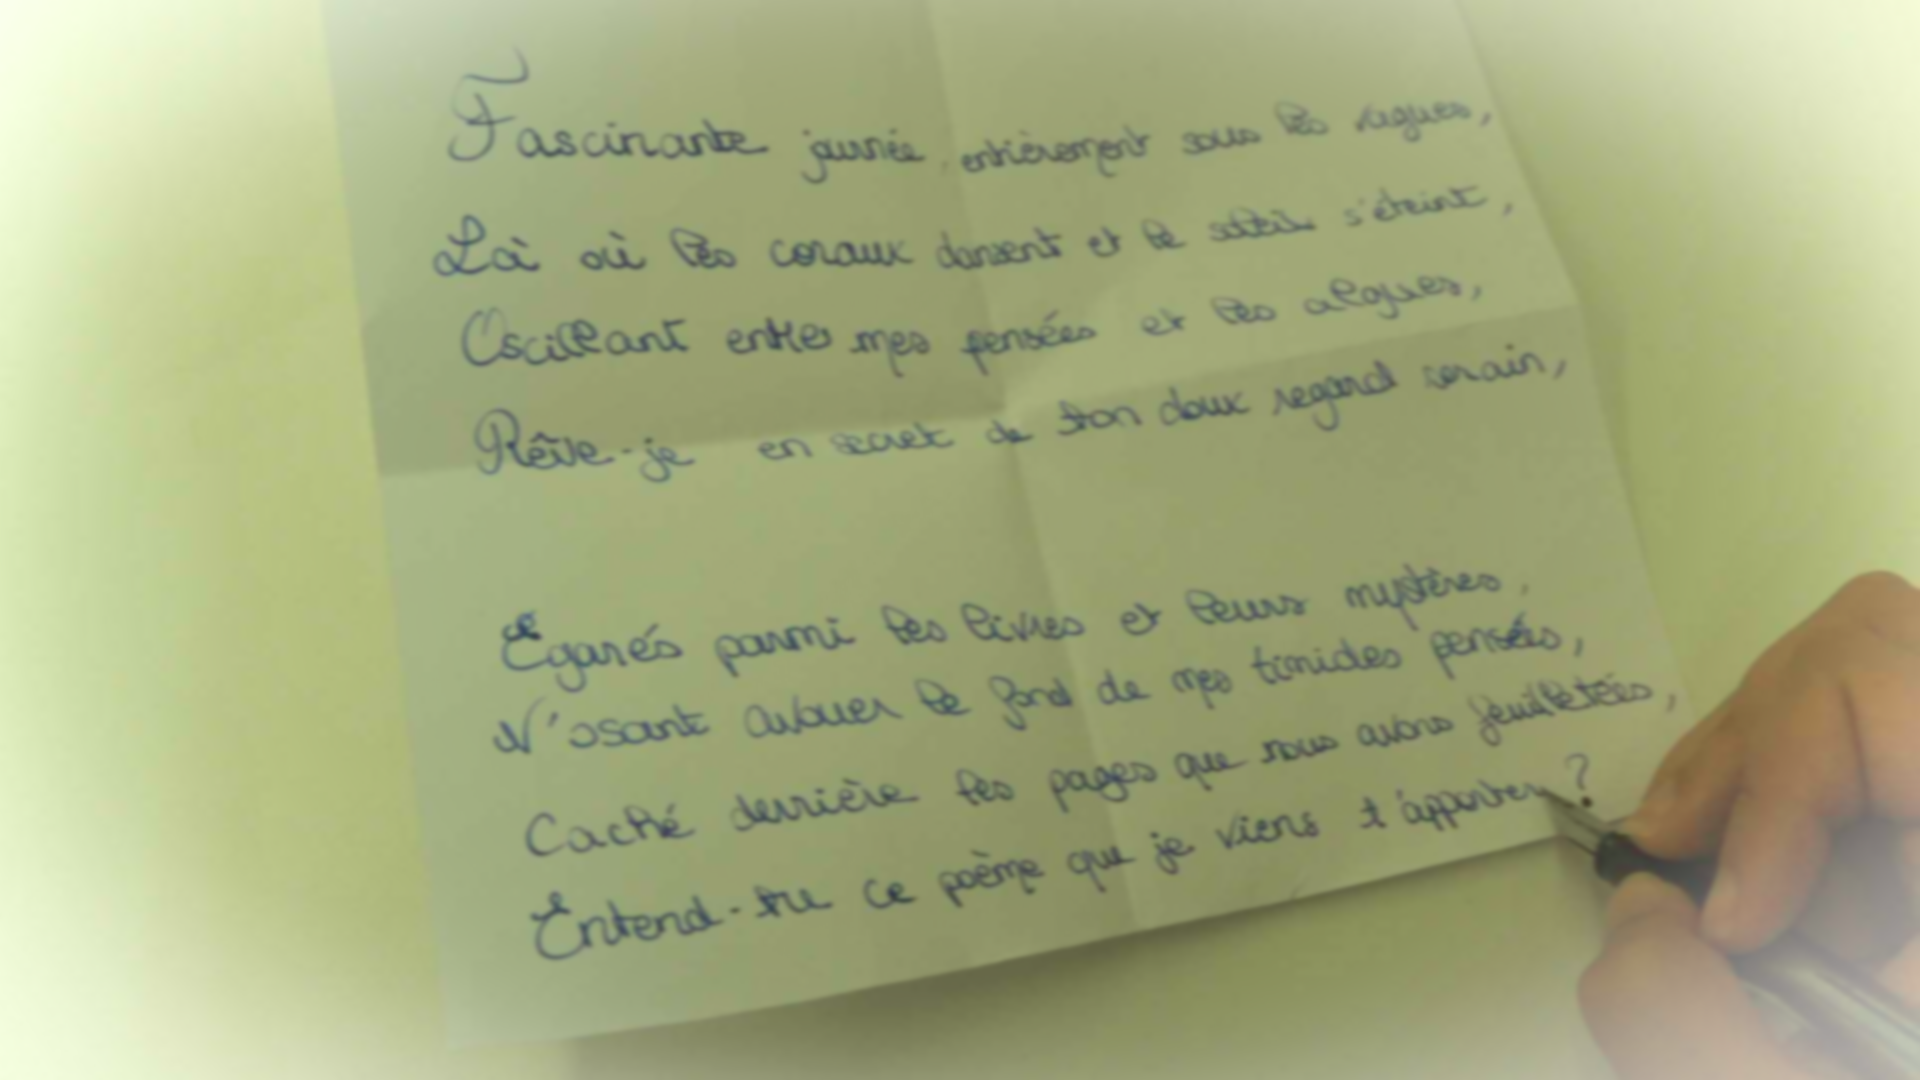 Fascinante journée, entièrement sous les vagues,
Là où les coraux dansent et le soleil s'éteint,
Oscillant entre mes pensées et les algues,
Rêve-je en secret de ton doux regard serain,
Égarés parmi les livres et leurs mystères,
N'osant avouer le fond de mes timides pensées,
Caché derrière les pages que nous avons feuilletées,
Entend-tu ce poème que je viens t'apporter ?